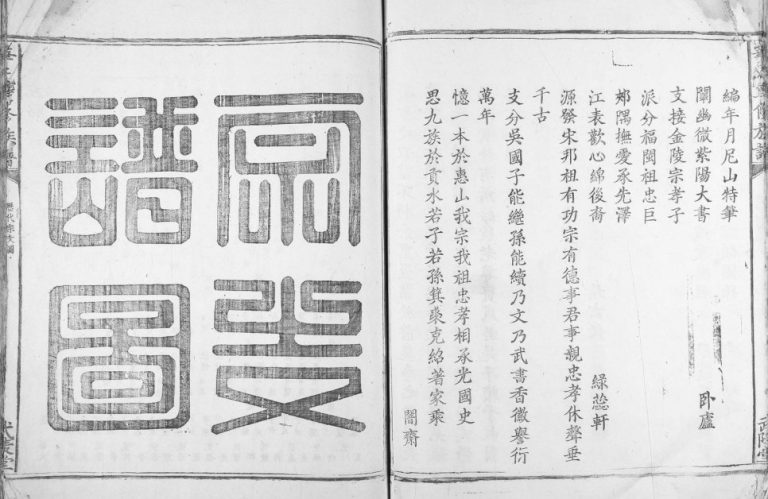 編年月尼山特筆
闡幽微紫陽大書
卧廬
支接金陵宗孝子
派分福閩祖忠巨
隅撫愛承先澤
江表歡心綿後裔
綠蕊軒
源發宋邦祖有功宗有德事君事親忠孝休聲垂
千古
支分吳國子能繼孫能續乃文乃武書香徽譽衍
萬年
憶一本於惠山我宗我祖忠孝相承光國史
思九族於貢水若子若孫箕裘克紹著家乘
闇齋
宗支
譜圖